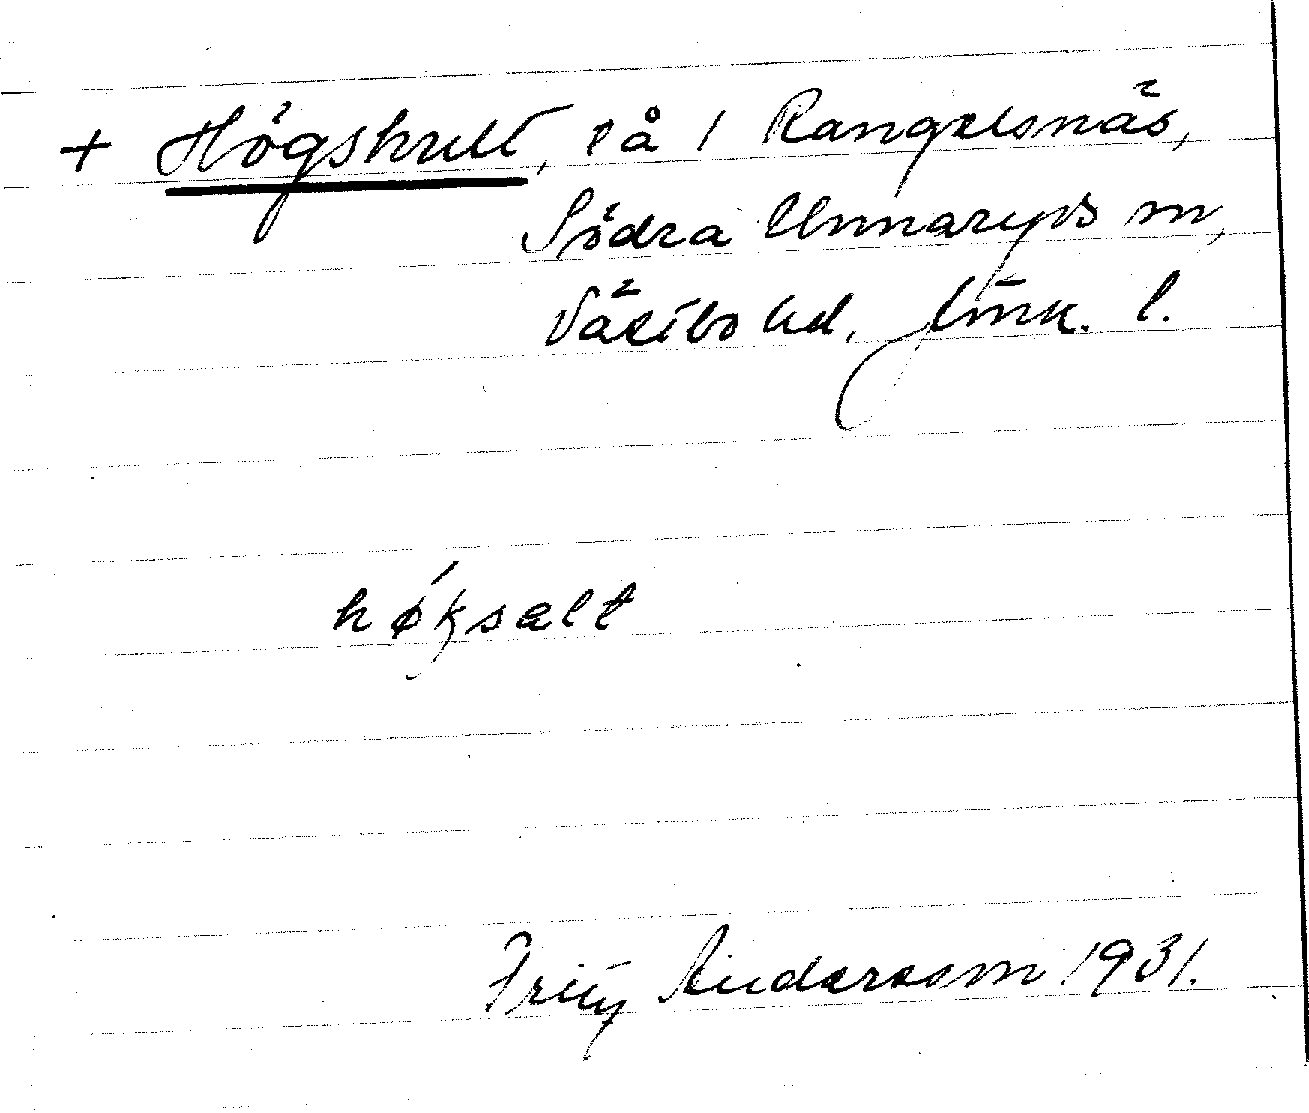 + Högshult, å 1 Rangelsnäs,
Södra Unnaryds sn,
Västbo hd. Jönk. l.
hǿksəlt
Fritz Andersson 1931.